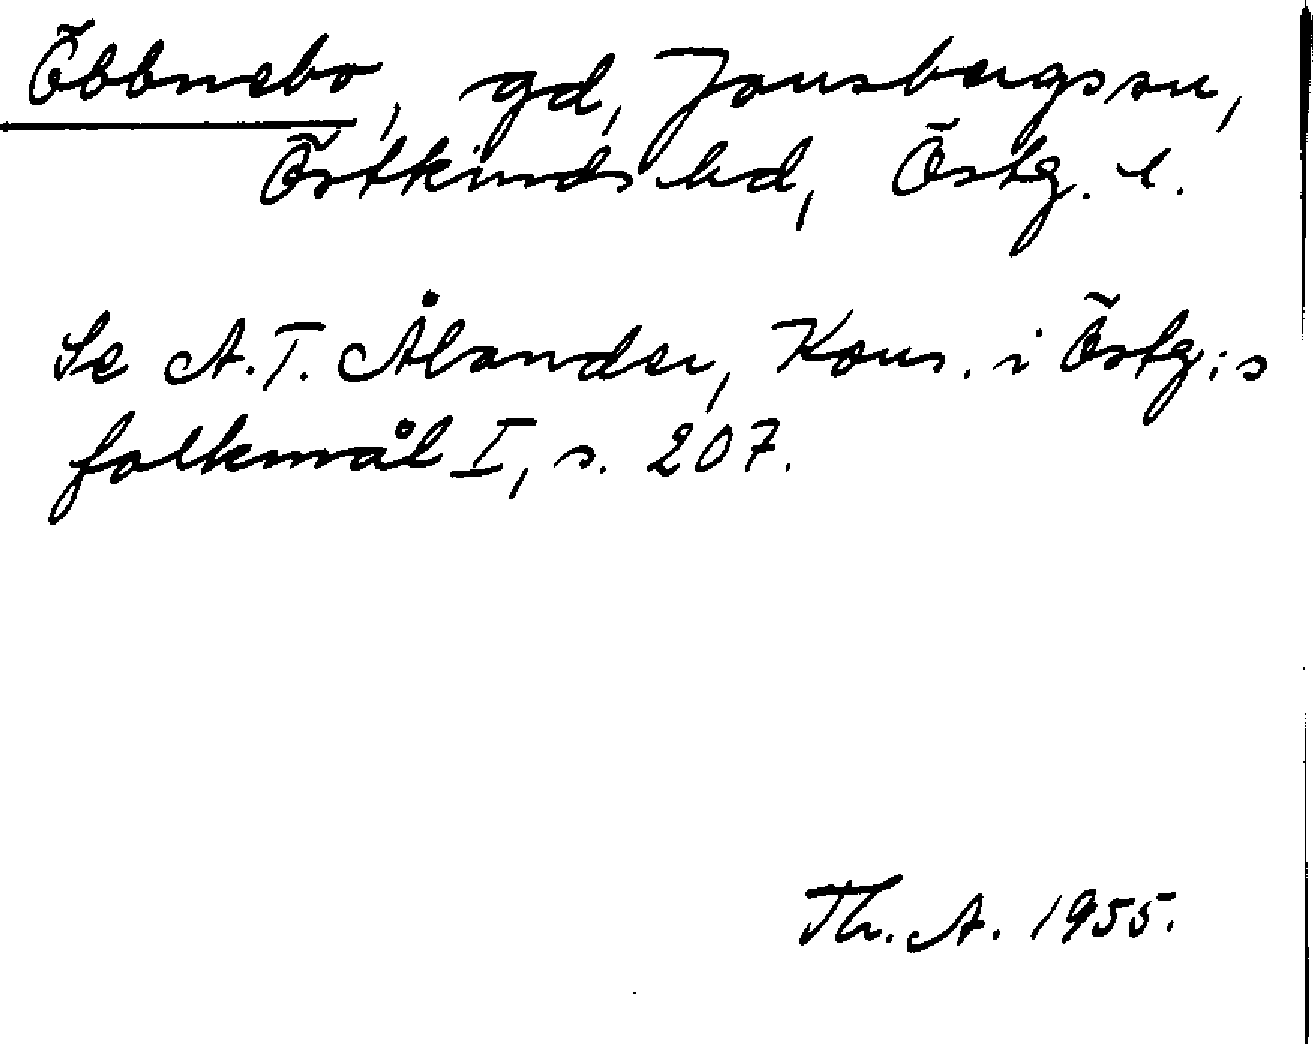 Öbbnebo, gd, Jonsbergs sn,
Östkinds hd, Östg. l.
Se A. T. Ålander, Kons. i Östg:s
folkmål I, s. 207.
Th. A. 1955.